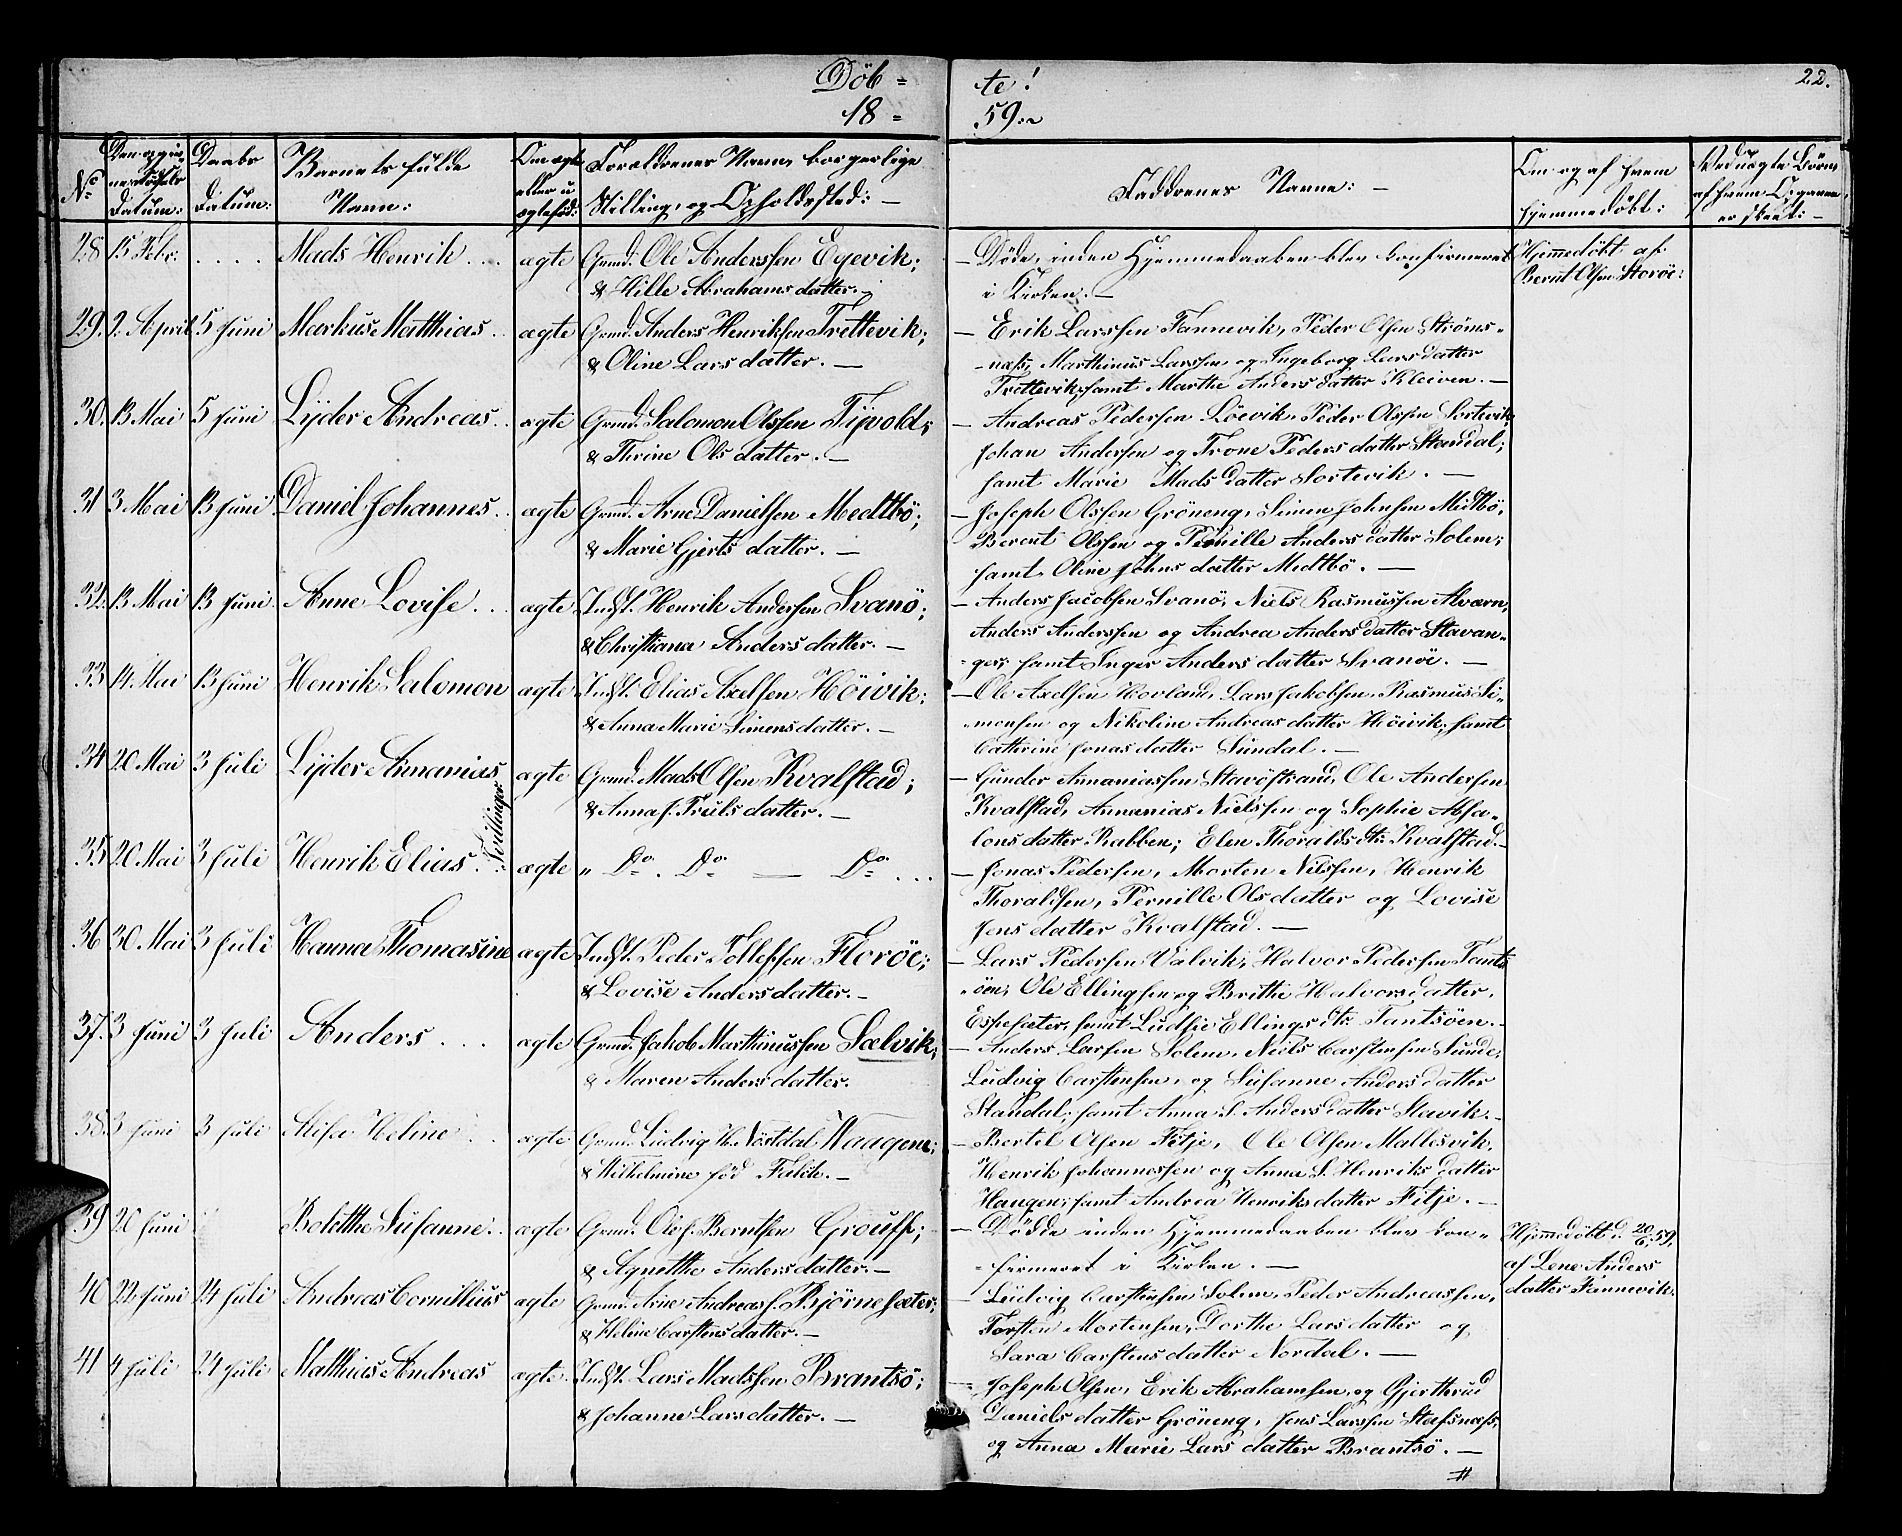 Döb =
18 =
te!
59.
22.
No
Den opgivne Födsels Datum:
Daabs Datum:
Barnets fulde Navn:
Om ægte eller uægtefød:
Forældrenes Navn, borgerlige Stilling, og Opholdssted: —
Faddrenes Navne: —
Om og af hvem hjemmedøbt:
Ved uægte Börn, af hvem Opgaven er skeet: —
28 15 Febr. . . . . Mads Henrik . . ægte Grmd. Ole Anderssen Egevik;
& Hille Abrahamsdatter. —
— Döde, inden Hjemmedaaben blev konfirmeret
i Kirken. —
Hjemmedöbt af
Bernt Olsen Storöe:
29. 2 April 5 Juni Markus Matthias . . ægte Grmd. Anders Henriksen Trettevik;
& Oline Larsdatter. —
— Erik Larssen Fannevik, Peder Olsen Ströms-
-næss, Marthinus Larssen og Ingeborg Larsdatter
Trettevik, samt Marthe Andersdatter Kleiven. —
30. 13 Mai 5 Juni Lyder Andreas . . ægte Grmd. Salomon Olssen Tijvold;
& Thrine Olsdatter. —
— Andreas Pedersen Löevik, Peder Olssen Sortevik,
Johan Andersen og Trone Pedersdatter Standal;
samt Marie Madsdatter Sortevik. —
31 3 Mai 13 Juni Daniel Johannes . . ægte Grmd. Arne Danielsen Medtbö;
& Marie Gjertsdatter. —
— Joseph Olssen Gröneng, Simen Johnsen Midtbö,
Berent Olssen og Pernille Andersdatter Solem;
samt Oline Johnsdatter Midtbö. —
32. 13 Mai 13 Juni Anne Lovise . . ægte Indst. Henrik Andersen Svanö;
& Christiana Andersdatter. —
— Anders Jacobsen Svanö, Niels Rasmussen Kværn,
Anders Anderssen og Andrea Andersdatter Stavan-
-ger; samt Inger Andersdatter Svanöe. —
33 14 Mai 13 Juni Henrik Salomon ægte Indst. Elias Axelsen Höivik;
& Anna Marie Simensdatter. —
— Ole Axelsen Hovland, Lars Jakobsen, Rasmus Si-
-monsen og Nikoline Andreasdatter Höivik, samt
Cathrine Jonasdatter Sundal. —
34 20 Mai 3 Juli Lyder Ananias ægte Grmd. Mads Olsen Kvalstad;
& Anna J. Trulsdatter. —
Tvillinger
— Gunder Annaniassen Stavöstrand, Ole Andersen
Kvalstad, Annanias Nielssen og Sophie Absa-
londatter Rabben; Elen Thoraldsdtr Kvalstad. —
35 20 Mai 3 Juli Henrik Elias . . ægte „ Do. Do — Do. . .
— Jonas Pedersen, Morten Nilssen, Henrik
Thoraldsen, Pernille Olsdatter og Lovise
Jensdatter Kvalstad. —
36 30 Mai 3 Juli Hanna Thomasine ægte Indst. Peder Tollefsen Floröe;
& Lovise Andersdatter. —
— Lars Pedersen Valvik, Halvor Pedersen Tants
-öen, Ole Ellingsen og Brithe Halvorsdatter,
Espesæter, samt Ludsie Ellingsdtr Tantsöen. —
37. 3 Juni 3 Juli Anders . . . ægte Grmd. Jakob Marthinussen Sælvik,
& Maren Andersdatter.
— Anders Larsen Solem, Niels Carstensen Sunde,
Ludvig Carstensen, og Susanne Andersdatter
Standal; samt Anna S. Andersdatter Slavik. —
38. 3 Juni 3 Juli Heline . . ægte Grmd. Ludvig Nöstdal Waagene;
& Wilhelmine föd Falck. —
— Bertel Olsen Fitje, Ole Olsen Mallesvik,
Henrik Johannessen og Anna S. Henriksdatter
Haugen; samt Andrea Henriksdatter Fitje. —
39 20 Juni Bolethe Susanne . . ægte Grmd. Ole J. Berntsen Grouff;
& Agnethe Andersdatter. —
— Dödde inden Hjemmedaaben blev kon-
-firmeret i Kirken. —
Hjemmedöbt d. 20/6 59,
af Lene Anders
datter Fannevik.
40 22 Juni 24 Juli Andreas Cornillius ægte Grmd. Arne Andreas J. Björnesæter;
& Heline Carstensdatter. —
— Ludvig Carstensen Solem, Peder Andreassen,
Torsten Mortensen, Dorthe Larsdatter og
Sara Carstensdatter Nordal. —
41 4 Juli 24 Juli Matthias Andreas ægte Indst. Lars Madssen Brantsö;
& Johanne Larsdatter. —
— Joseph Olsen, Erik Abrahamsen, og Gjerthrud
Danielsdatter Gröneng, Jens Larssen Stafsnæss,
og Anna Marie Larsdatter Brantsö. —